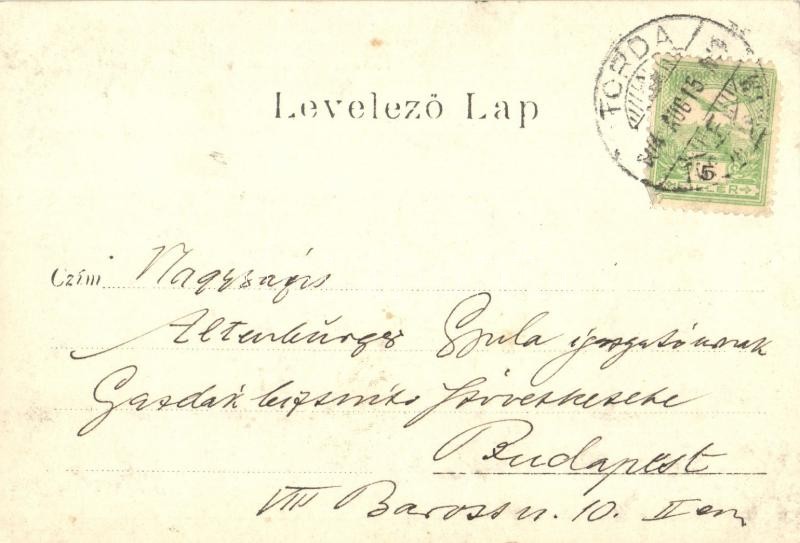 Levelező Lap
TORDA
904 AUG 15
5
Czím Nagyságos
Altenburger Gyula igazgatóurnak
Gazdák biztosító szövetkezete
Budapest
VIII Baross u. 10. II em